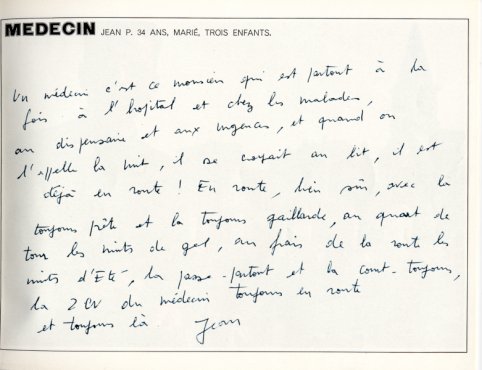 MEDECIN JEAN P. 34 ANS, MARIÉ, TROIS ENFANTS.
Un médecin c'est ce monsieur qui est partout à la
fois à l'hopital et chez les malades,
au dispensaire et aux urgences, et quand on
l'appelle la nuit, il se croyait au lit, il est
déjà en route ! En route, bien sûr, avec la
toujours prête et la toujours gaillarde, au quart de
tour les nuits de gel, au frais de la route les
nuits d'Eté, la passe-partout et la court-toujours,
la 2 CV du médecin toujours en route
et toujours là Jean